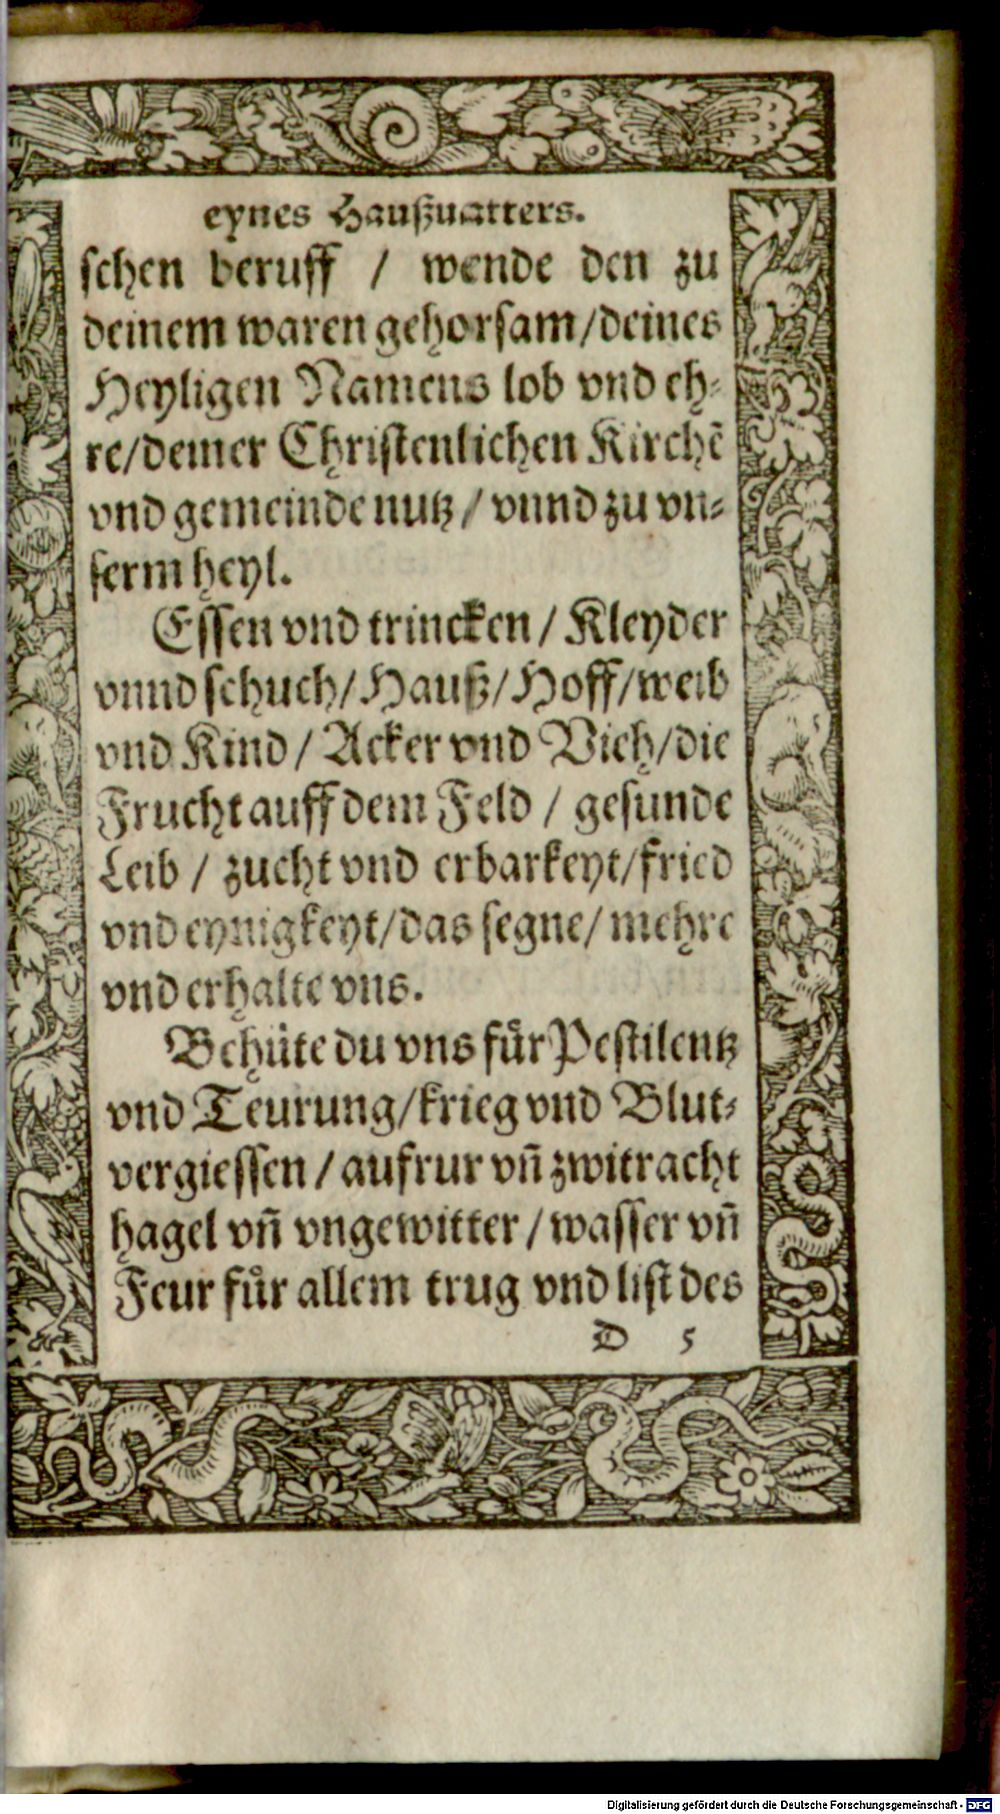 eynes Haußuatters.
schen beruff / wende den zu
deinem waren gehorsam/deines
Heyligen Namens lob vnd eh⸗
re/deiner Christenlichen Kirchẽ
vnd gemeinde nutz / vnnd zu vn⸗
serm heyl.
Essen vnd trincken / Kleyder
vnnd schuch/Hauß/Hoff/weib
vnd Kind / Acker vnd Vieh/die
Frucht auff dem Feld / gesunde
Leib / zucht vnd erbarkeyt/fried
vnd eynigkeyt/das segne/ mehre
vnd erhalte vns.
Behüte du vns fuͤr Pestilentz
vnd Teurung/krieg vnd Blut⸗
vergiessen / aufrur vñ zwitracht
hagel vñ vngewitter / wasser vñ
Feur fuͤr allem trug vnd list des
D 5
Digitalisierung gefördert durch die Deutsche Forschungsgemeinschaft - DFG